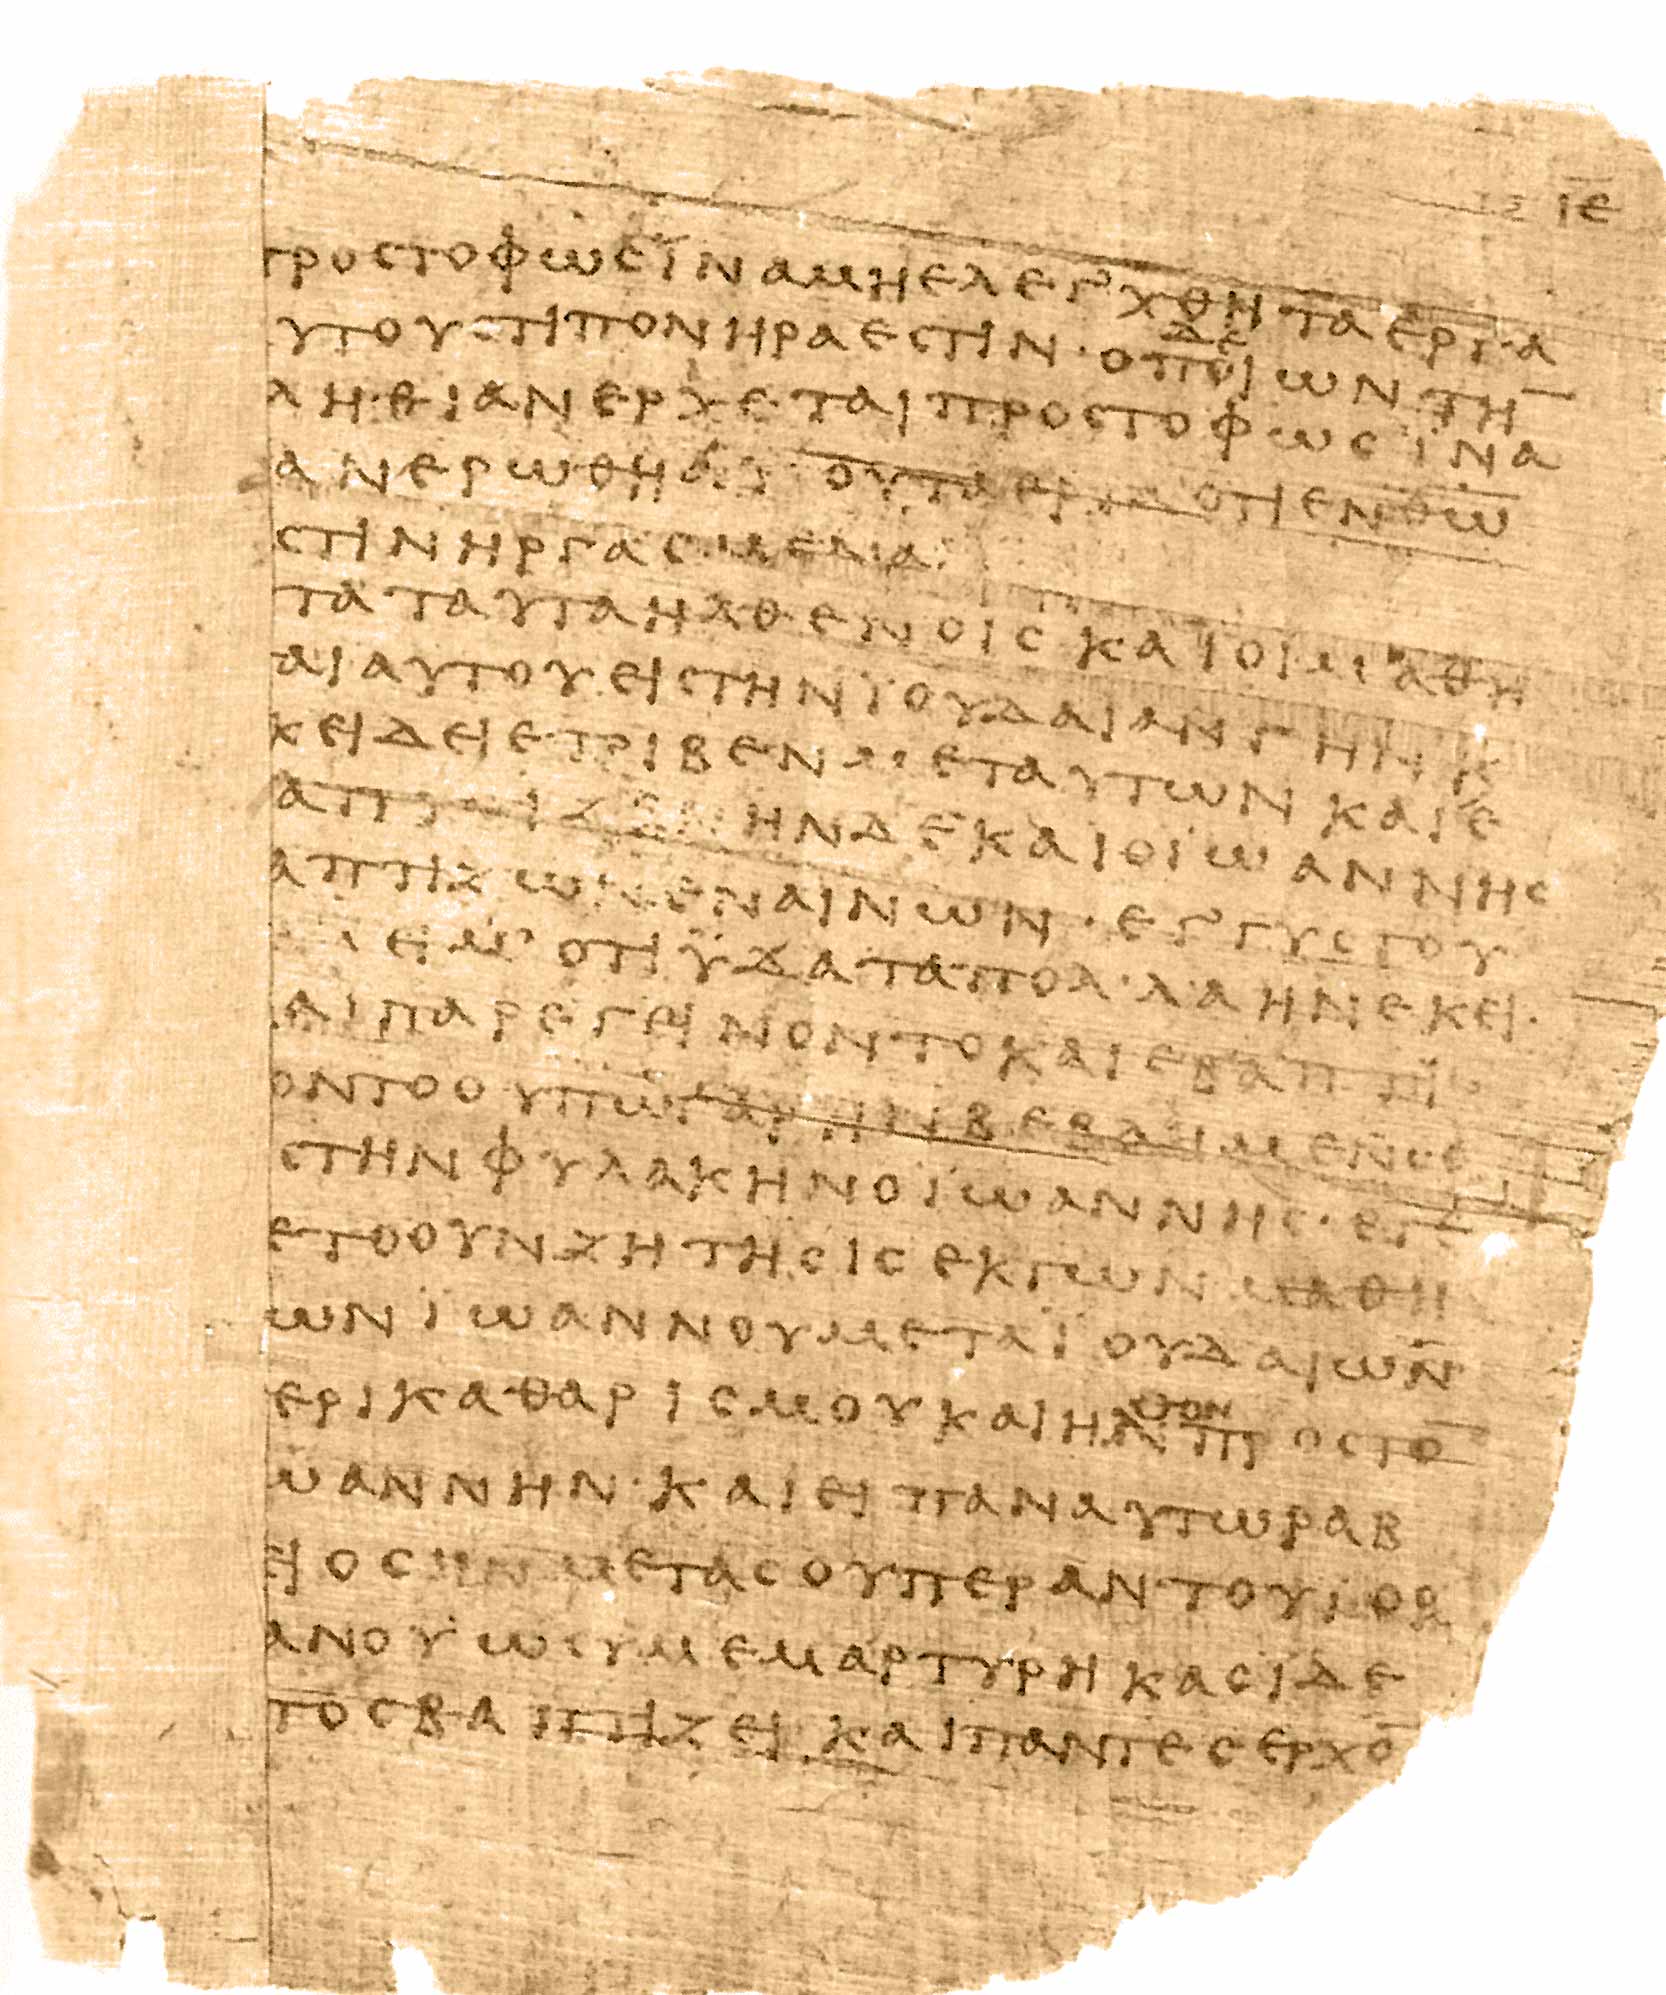 ιε
προστοφωσϊναμηελεγ'χθηταεργα
υτουοτιπονηραεστιν·οποιωντη̄
δε
ληθειανερχεταιπροστοφωσϊνα
ανερωθη ουταεργαοτιενθω̄
στινηργασμενα·
ταταυταηλθενοισκαιοιμαθη
αιαυτουειστηνϊουδαιανγηνκ
κειδειετριβενμεταυτωνκαιε
απτιζενηνδεκαιοϊωαννησ
απτιζωνεναινων·εγ'γυστου
λειμ'οτιϋδαταπολ'λαηνεκει·
αιπαρεγεινοντοκαιεβαπτι
οντοουπωγαρηνβεβλημενοσ
στηνφυλακηνοϊωαννησ·εγε
ετοουνζητησισεκτωνμαθη
ωνϊωαννουμεταϊουδαιων
ερικαθαρισμουκαιηνπροστο̄
θον
ωαννην·καιειπαναυτωραβ
ειοσηνμετασουπεραντουϊορ
ανουωσυμεμαρτυρηκασιδε
τοσβαπτιζεικαιπαντεσερχο̄